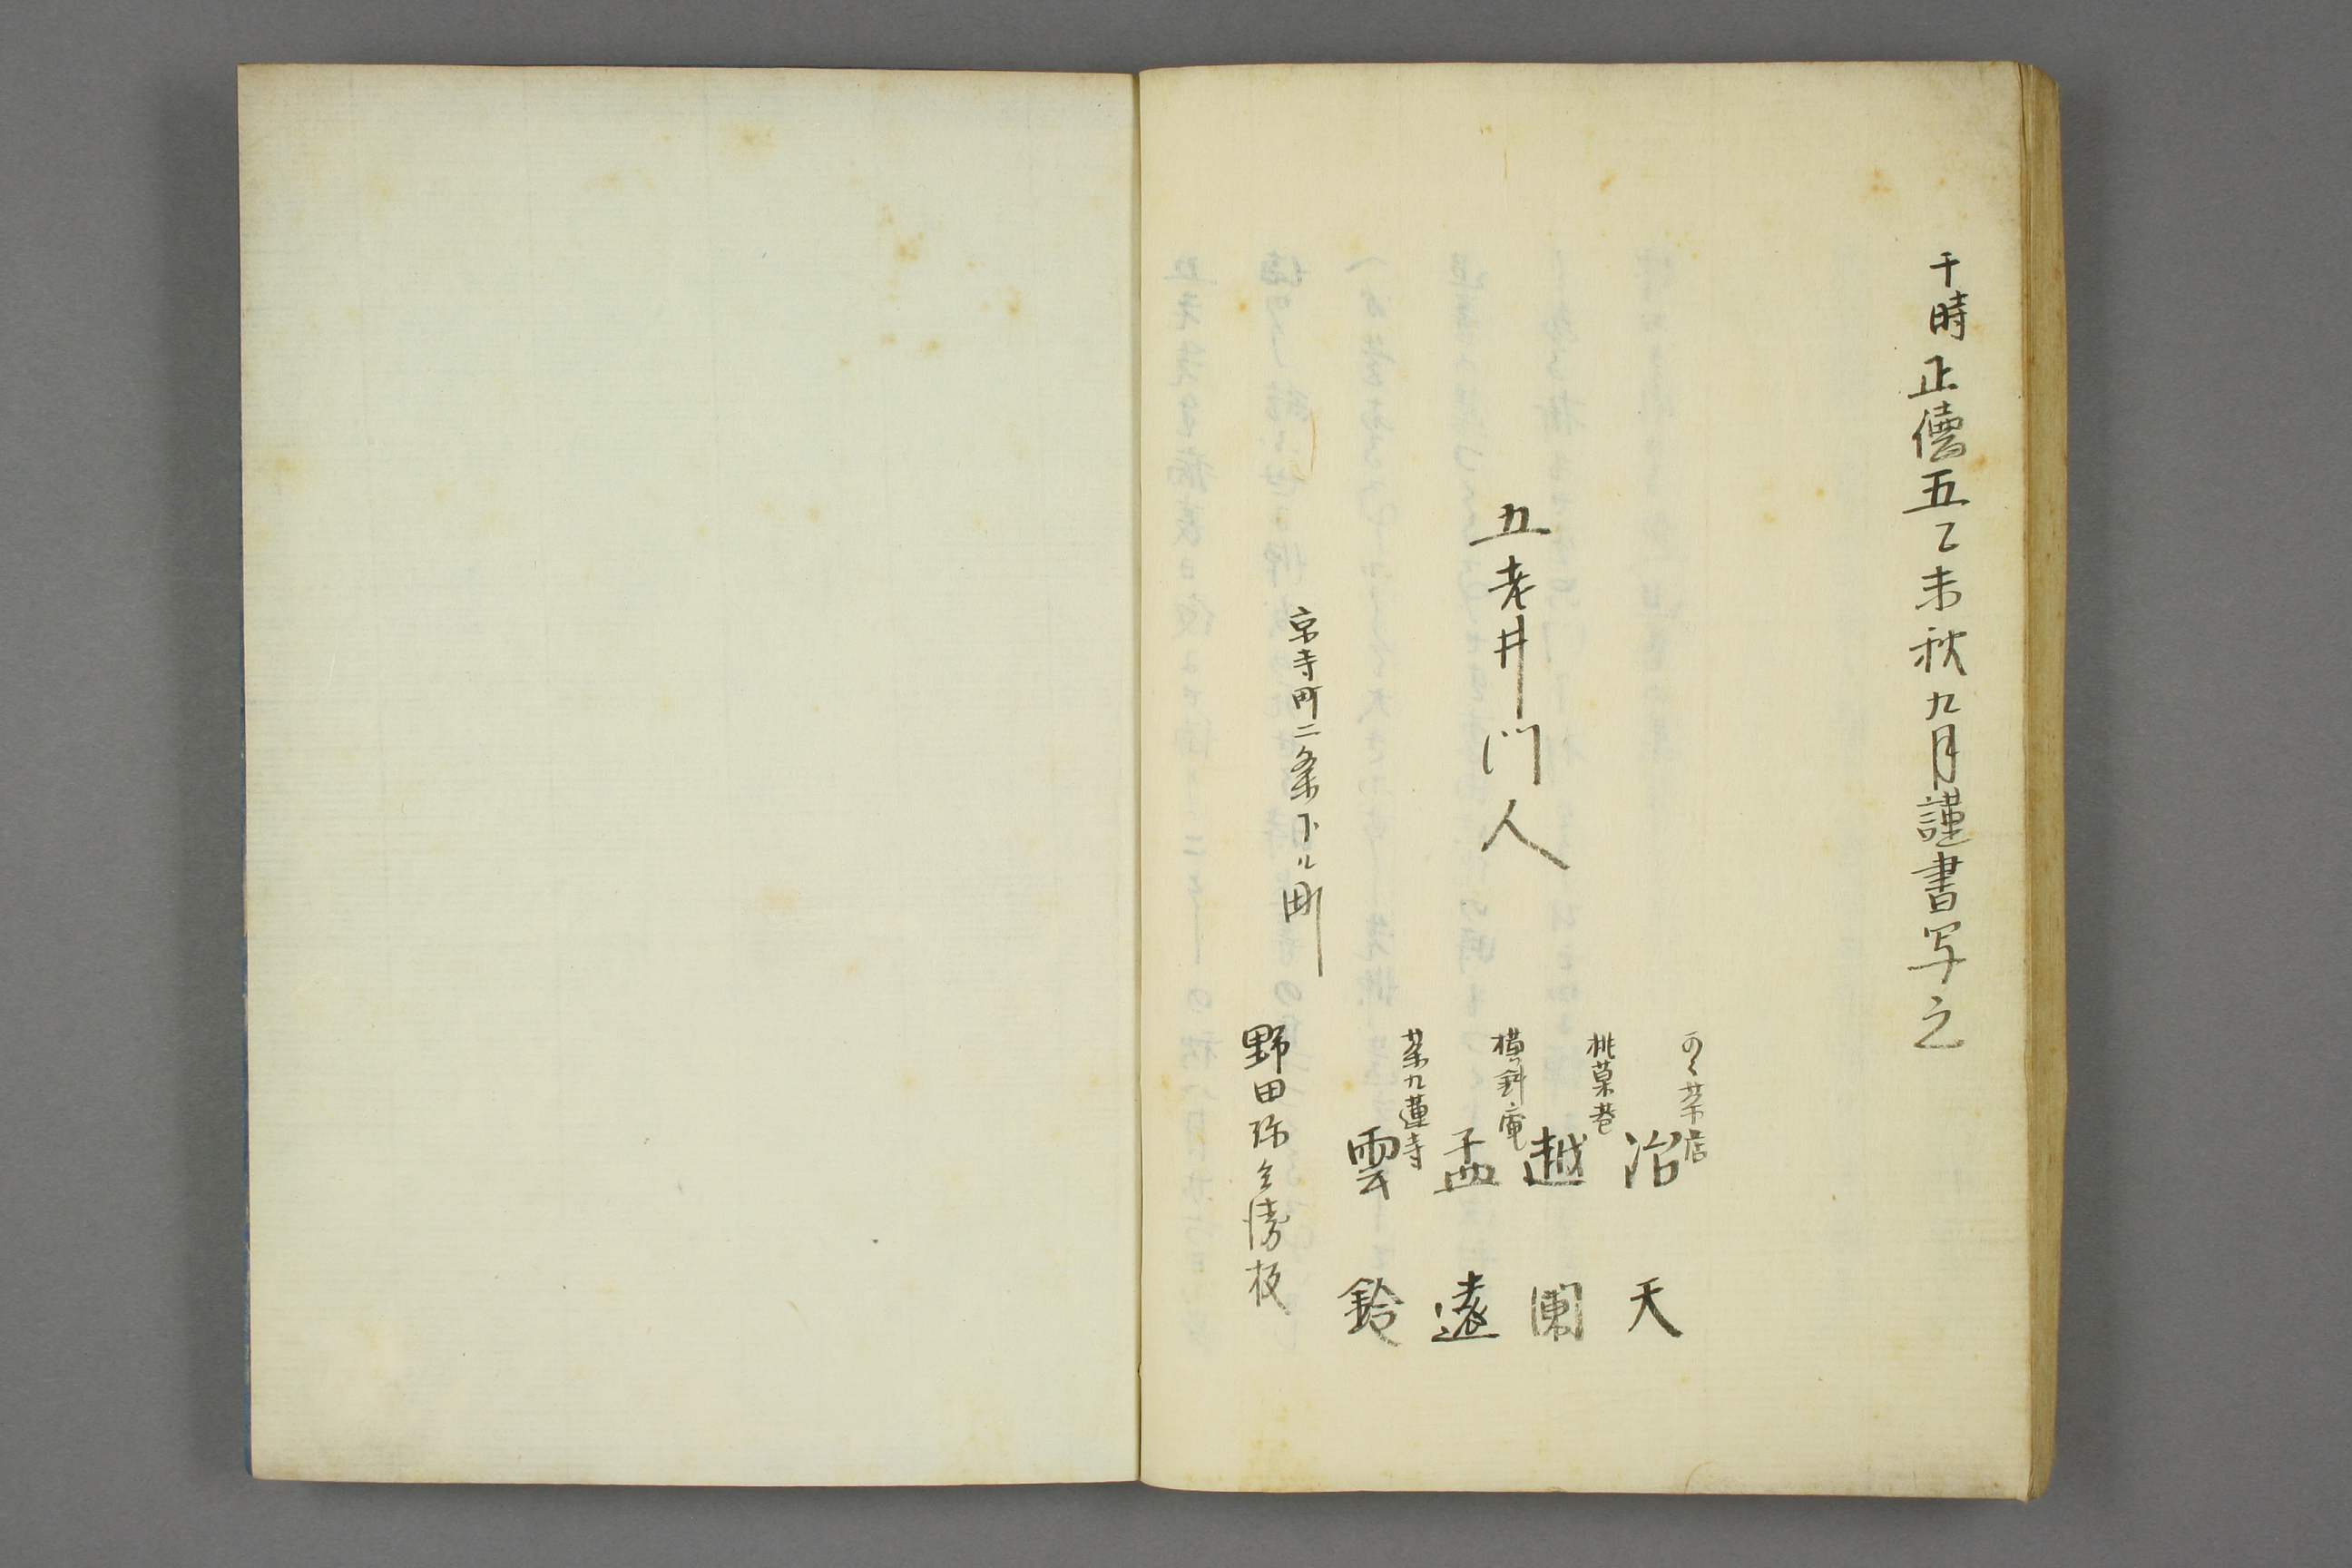 于時正德五乙未秋九月謹書写之
五老井門人
茶店
治天
桃菓巷
越闌
横斜庵
孟遠
茶九蓮寺
雲鈴
京寺町二条下ル町
野田弥兵衛板